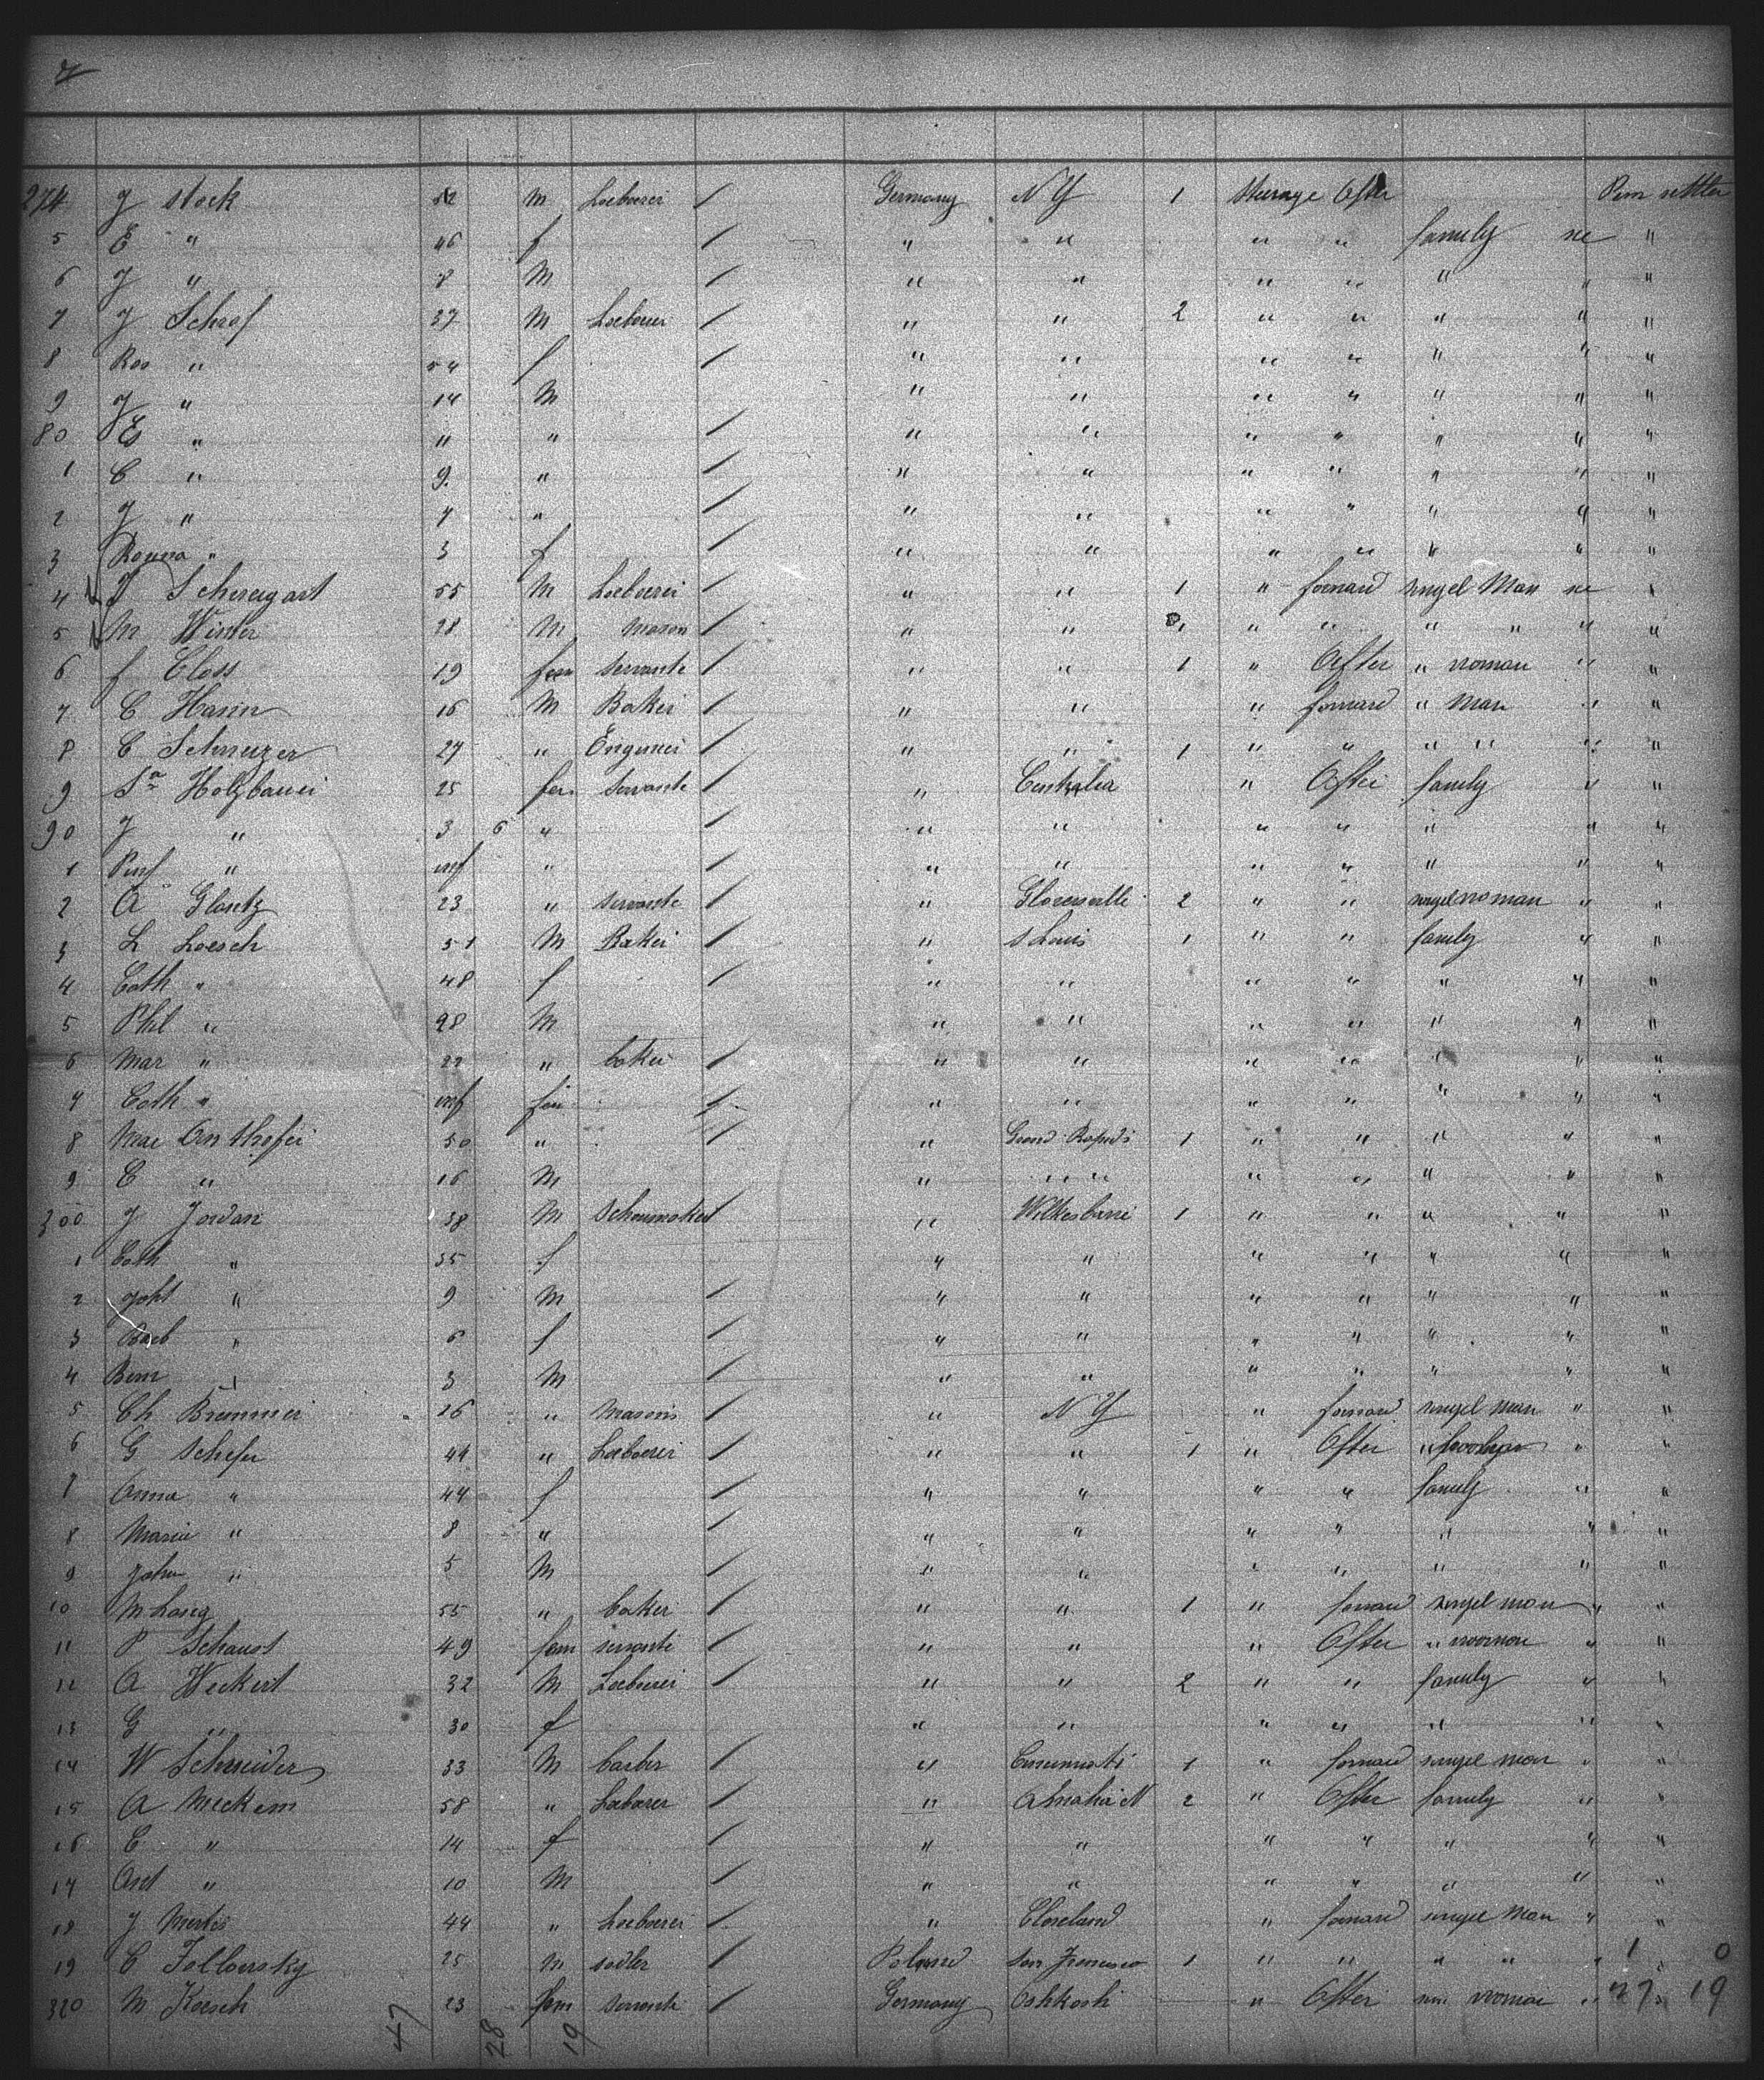 7
274 J Stock 52 M Laeboerer / Germany N Y 1 Steerage After Perm settler
5 E " 46 f / " " " " family ne "
6 J " 8 M / " " " " " " "
7 J Schraf 37 M Laeborer / " " 2 " " " " "
8 Ros " 54 f / " " " " " " "
9 J " 14 M " " " " " " "
80 Es " 11 " / " " " " " " "
1 C " 9 " / " " " " " " "
2 J " 7 " / " " " " " " "
3 Rosina " 3 f / " " " " " " "
4 J Schweigart 55 M Laeboerer / " " 1 " forward singel Man ne "
5 M Winter 28 M Mason / " " 1 " " " " " "
6 f Closs 19 fem servante / " " 1 " After " woman " "
7 C Hann 16 M Baker / " " " forward " Man " "
8 C Schweizer 27 " Engineer / " " 1 " " " " " "
9 Sa Holzbauer 25 fem servante / " Centralia " After family " "
90 J " 3 6 " / " " " " " " "
1 " inf " / " " " " " " "
2 A Glantz 23 " servante / " 2 " " singel woman " "
3 L Loesch 51 M Baker / " S Louis 1 " " family " "
4 Cath " 48 f / " " " " " " "
5 Phil " 28 M " " " " " " "
6 Mar " 22 " baker / " " " " " " "
7 Cath " inf fem / " " " " " " "
8 Mar Anthofer 50 " / " Grand Rapids 1 " " " " "
9 C " 16 M " " " " " " " "
300 J Jordan 38 M Schoumaker / " Wilkesbarre 1 " " " " "
1 Cath " 35 f " " " " " " "
2 Joht " 9 M / " " " " " " "
3 Barb " 6 f / " " " " " " "
4 Bern " 3 M / " " " " " " "
5 Ch Brummer 26 " Masons / " N Y " forward singel man " "
6 G Schefer 44 " Laeboerer / " " 1 " After " " "
7 Anna " 44 f / " " " " family " "
8 Maria " 8 " / " " " " " " "
9 John " 5 M / " " " " " " "
10 M Lang 55 " baker / " " 1 " forward singel man " "
11 P Schaust 49 fem servante / " " " After " woman " "
12 A Weckert 32 M Laeboerer / " " 2 " " family " "
13 G " 30 f " " " " " " "
14 W Schneider 33 M barber / " Cincinnati 1 " forward singel man " "
15 A Meckem 58 " Laeboerer / " Omaha N 2 " After family " "
16 C " 14 f / " " " " " " "
17 Ant " 10 M / " " " " " " "
18 J Mertes 44 " Laeboerer / " Cleveland " forward singel Man " "
19 C 25 M sadler / Poland San Francisco 1 " " " " " " 1 0
320 M Koesch 23 fem servante / Germany Oshkosh " After woman " 27 " 19
47 28 19